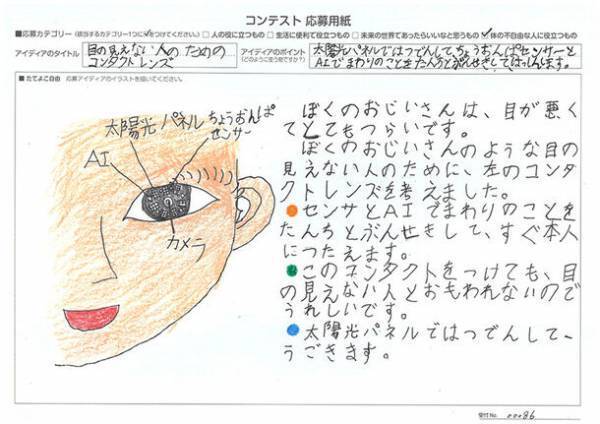 コンテスト 応募用紙
■応募カテゴリー(該当するカテゴリー1つに✓をつけてください。) □ 人の役に立つもの □ 生活に便利で役立つもの □ 未来の世界であったらいいなと思うもの ☑ 体の不自由な人に役立つもの
アイディアのタイトル
目の見えない人のための
コンタクトレンズ
アイディアのポイント
(どのように使う物ですか?)
太陽光パネルではつでんしてちょうおんぱセンサーと
AIでまわりのことをたんちとぶんせきしてはっしんします。
■たてよこ自由 応募アイディアのイラストを描いてください。
太陽光パネル
ちょうおんぱ
センサー
AI
カメラ
ぼくのおじいさんは、目が悪く
てとてもつらいです。
ぼくのおじいさんのような目の
見えない人のために、左のコンタ
クトレンズを考えました。
●センサとAIでまわりのことを
たんちとぶんせきして、すぐ本人
につたえます。
●このコンタクトをつけても、目
の見えない人とおもわれないので
うれしいです。
●太陽光パネルではつでんして、
うごきます。
受付No. 00086